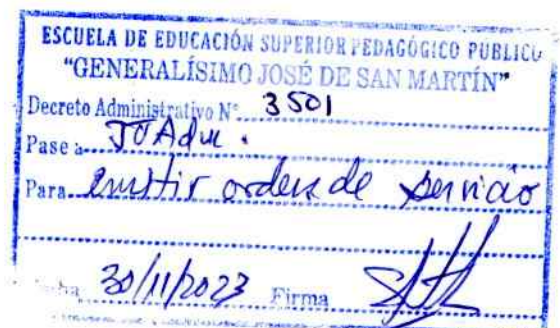 ESCUELA DE EDUCACIÓN SUPERIOR PEDAGÓGICO PUBLICO
"GENERALÍSIMO JOSÉ DE SAN MARTÍN"
Decreto Administrativo N° 3501
Pase a
Para emitir orden de servicio
30/11/2023 Firma